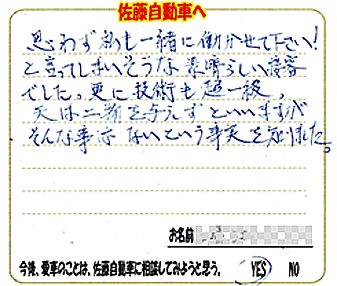 佐藤自動車へ
思わず私も一緒に働かせて下さい!
と言ってしまいそうな素晴らしい接客
でした。更に技術も超一級。
天は二物を与えずといいますが
そんな事はないという事実を知りました。
お名前
今後、愛車のことは、佐藤自動車に相談してみようと思う。 YES NO